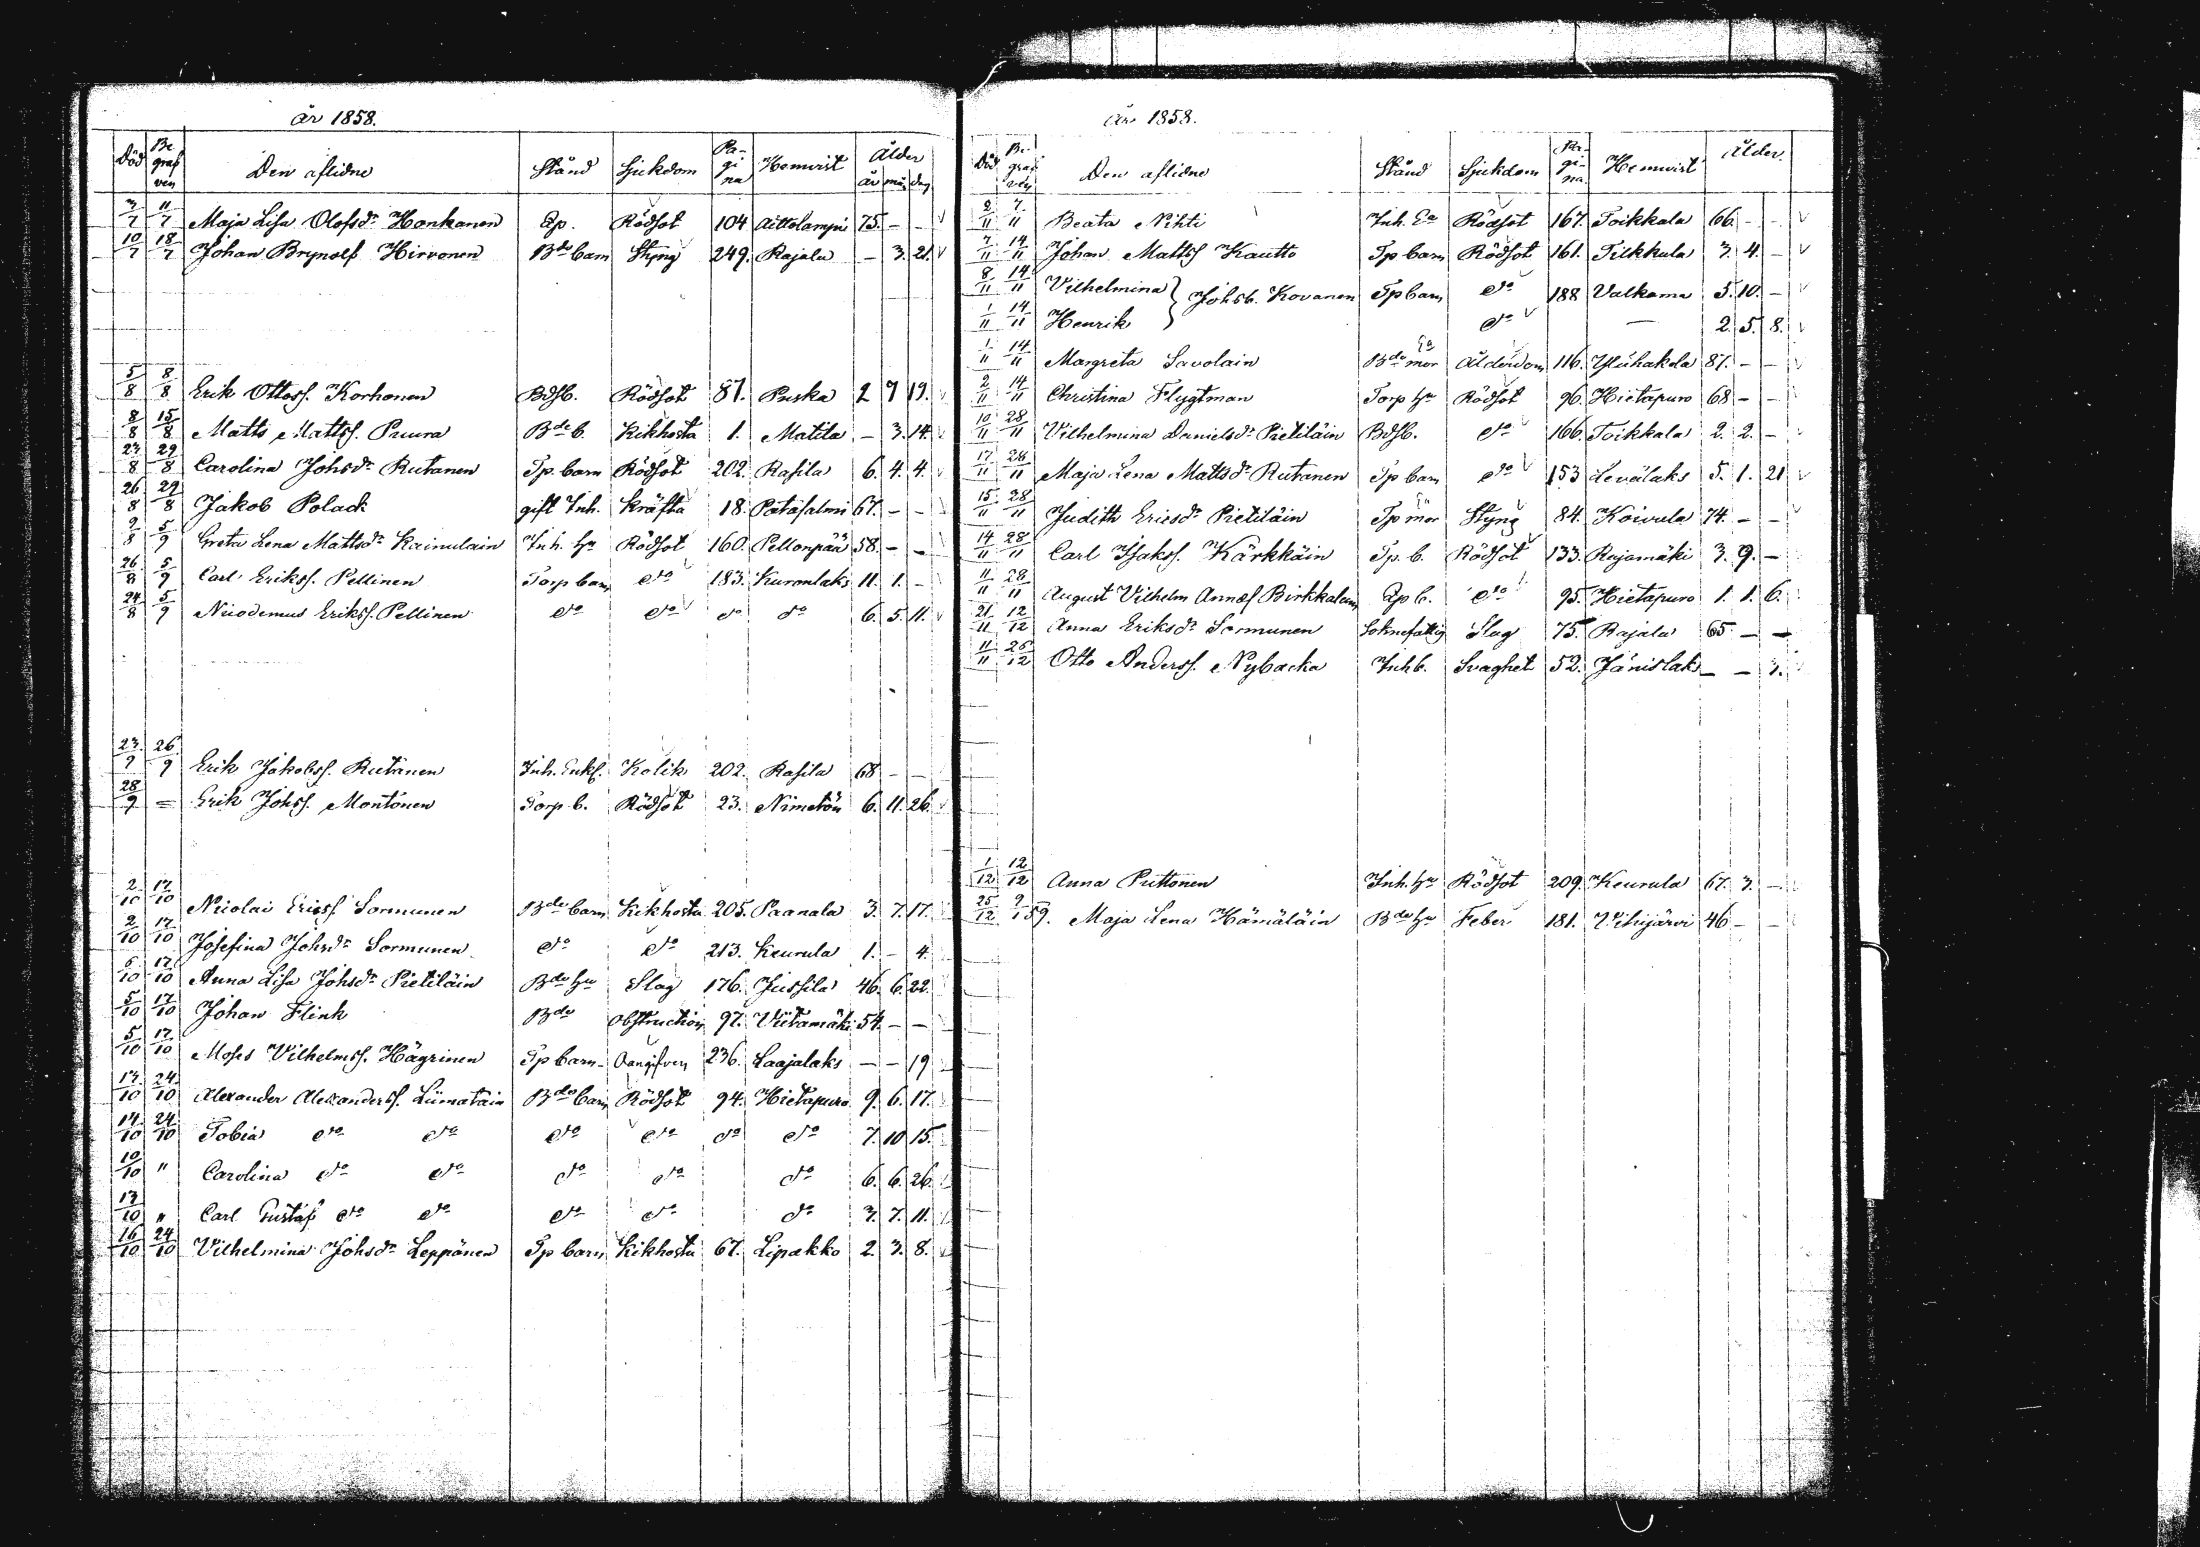 år 1858.
Död Begrafven Den aflidne Stånd Sjukdom Pagina Hemvist Ålder år mån dag
3/7 11/7 Maja Lisa Olofsdr Honkanen Rödsot 104 Aittolampi 75. - - v
10/7 18/7 Johan Brynolf Hirvonen Bde barn Styng 249. Rajala - 3. 21. v
5/8 8/8 Erik Ottoss. Korhonen Bdsb. Rödsot 87. Puska 2 7 19.
8/8 15/8 Matts Mattss. Puura Bde b. Kikhosta 1. Matila - 3. 14.
23/8 29/8 Carolina Johsdr Rutanen Tp. barn Rödsot 202. Rasila 6. 4. 4.
26/8 29/8 Jakob Polack gift Inh. Kräfta 18. Patasalmi 67. - -
2/8 5/9 Greta Lena Mattsdr Kainulain Inh. hu Rödsot 160. Pellonpää 58. - -
26/8 5/9 Carl Erikss. Pellinen Torp barn do 183. Kuronlaks 11. 1. -
24/8 5/9 Nicodemus Erikss. Pellinen do do do do 6. 5. 11. v
23/9 26/9 Erik Jakobss. Rutanen Inh. Enkl. Kolik 202. Rasila 68 - -
28/9 = Erik Johss. Montonen Torp. b. Rödsot 23. Nimetön 6. 11. 26.
2/10 17/10 Nicolai Ericss. Sormunen Bde barn Kikhosta 205. Paanala 3. 7. 17.
2/10 17/10 Josefina Johsdr Sormunen do do 213. Keurula 1. - 4.
6/10 17/10 Anna Lisa Johsdr Pietiläin Bde hu Slag 176. Jussila 46. 6. 22.
5/10 17/10 Johan Flink Bde Obstruction 97. Viitamäki 54. - -
5/10 17/10 Moses Vilhelmss. Hägrinen Tp barn Oangifven 236. Laajalaks - - 19
13/10 24/10 Alexander Alexanderss. Liimatain Bde barn Rödsot 94. Hietapuro 9. 6. 17.
14/10 24/10 Tobia do do do do do do 7. 10 15.
10/10 " Carolina do do do do do 6. 6. 26.
13/10 " Carl Gustaf do do do do do 3. 7. 11.
16/10 24/10 Vilhelmina Johsdr Leppänen Tp barn Kikhosta 67. Lipakko 2. 3. 8.
år 1858.
Död Begrafven Den aflidne Stånd Sjukdom Pagina Hemvist Ålder.
2/11 7/11 Beata Nihti Inh. Ea Rödsot 167. Toikkala 66. - - v
7/11 14/11 Johan Mattss Kautto Tp barn Rödsot 161. Tilkkula 3. 4. - v
8/11 14/11 Vilhelmina } Johsb. Kovanen Tp barn do 188 Valkama 5. 10. - v
1/11 14/11 Henrik do — 2. 5. 8. v
1/11 14/11 Margreta Savolain Bde mor Ea Ålderdom 116. 87. - -
2/11 14/11 Christina Flygtman Torp hu Rödsot 96. Hietapuro 68 - -
10/11 28/11 Vilhelmina Danielsdr Pietiläin Bdsb. do 166. Toikkala 2. 2. -
17/11 28/11 Maja Lena Mattsdr Rutanen Tp barn do 153 Levälaks 5. 1. 21 v
15/11 28/11 Judith Ericsdr Pietiläin Tp mor Ea Styng 84. Koivula 74. - -
14/11 28/11 Carl Isakss. Kärkkäin Tp. b. Rödsot 133. Rajamäki 3. 9. -
11/11 28/11 August Vilhelm Annas Birkkalain b. do 95. Hietapuro 1. 1. 6.
21/11 12/12 Anna Eriksdr Sormunen Soknefattig Slag 75. Rajala 65. - -
11/11 26/12 Otto Anderss. Nybacka Inh b. Svaghet 52. Jänislaks - -
1/12 12/12 Anna Puttonen Inh. hu Rödsot 209. Keurula 67. 3. -
25/12 2/1 59. Maja Lena Hämäläin Bde hu Feber 181. Vihijärvi 46 - -